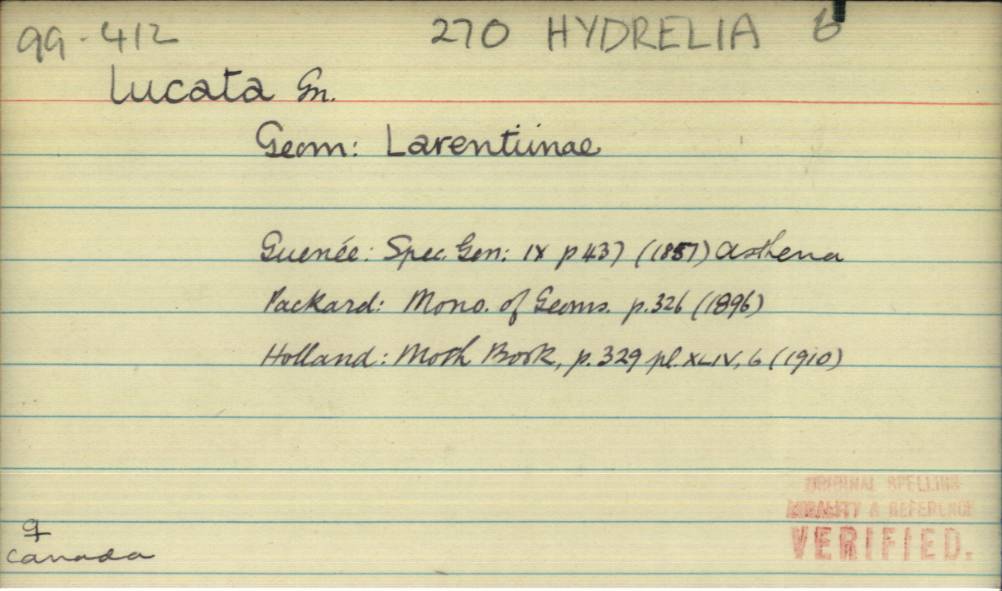 99-412 270 HYDRELIA 6
lucata Gn.
Geom: Larentiinae
Guenée: Spec. Gen: IX p 437 (1857) Asthena
Packard: Mono. of Geoms. p.326 (1896)
Holland: Moth Book, p. 329 pl. XLIV, 6 (1910)
ORIGINAL SPELLING
LOCALITY & REFERENCE
VERIFIED.
♀
Canada